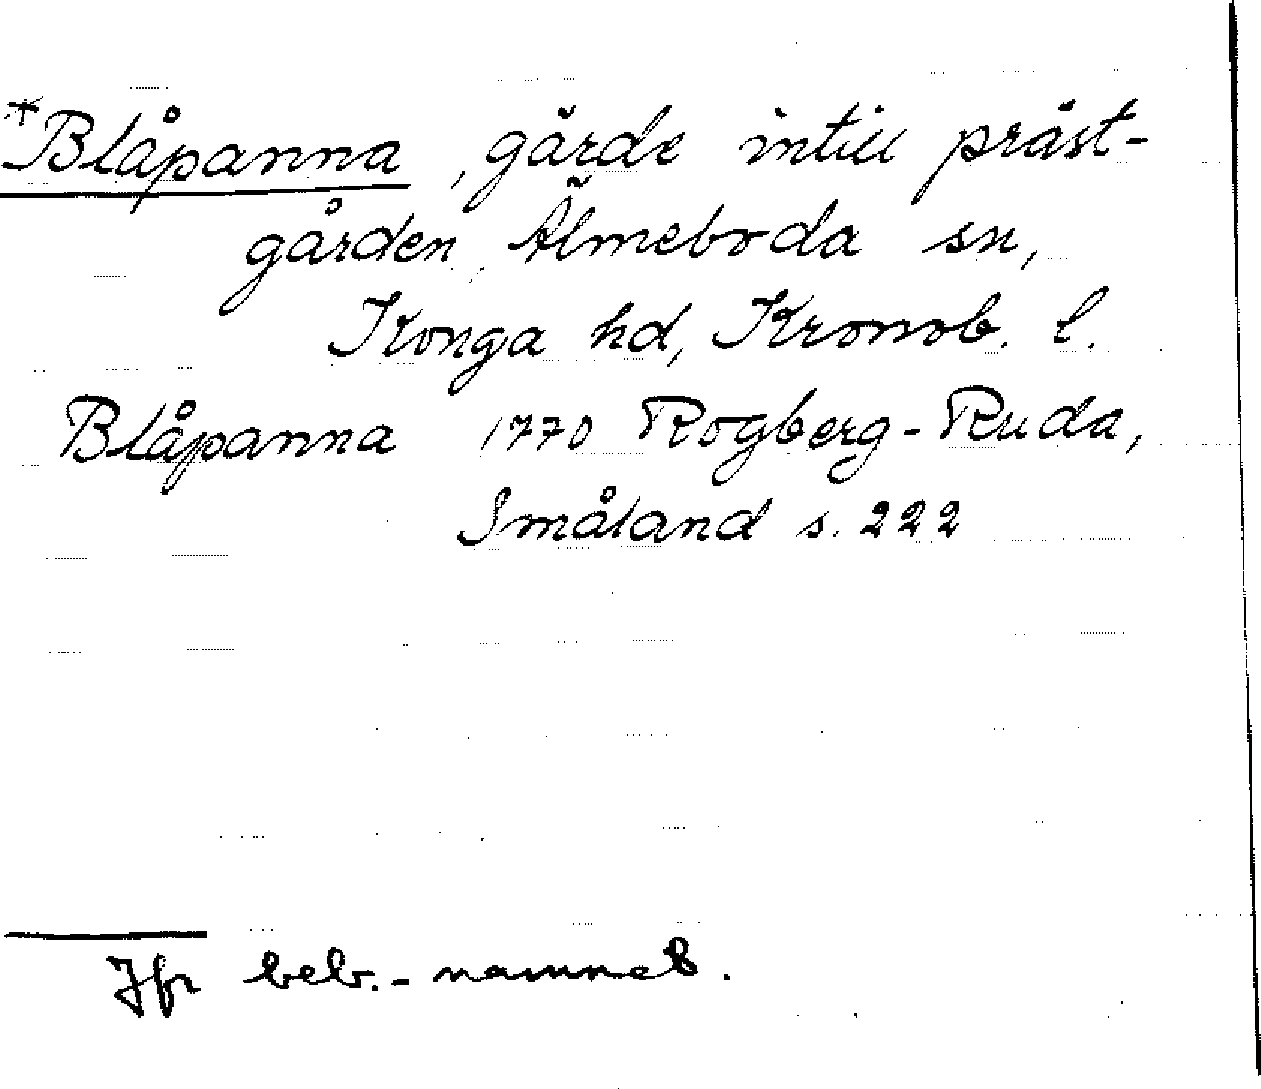 *Blåpanna, gärde intill präst-
gården, Älmeboda sn,
Konga hd, Kronob. l.
Blåpanna 1770 Rogberg-Ruda,
Småland s. 222
Jfr beb.-namnet.